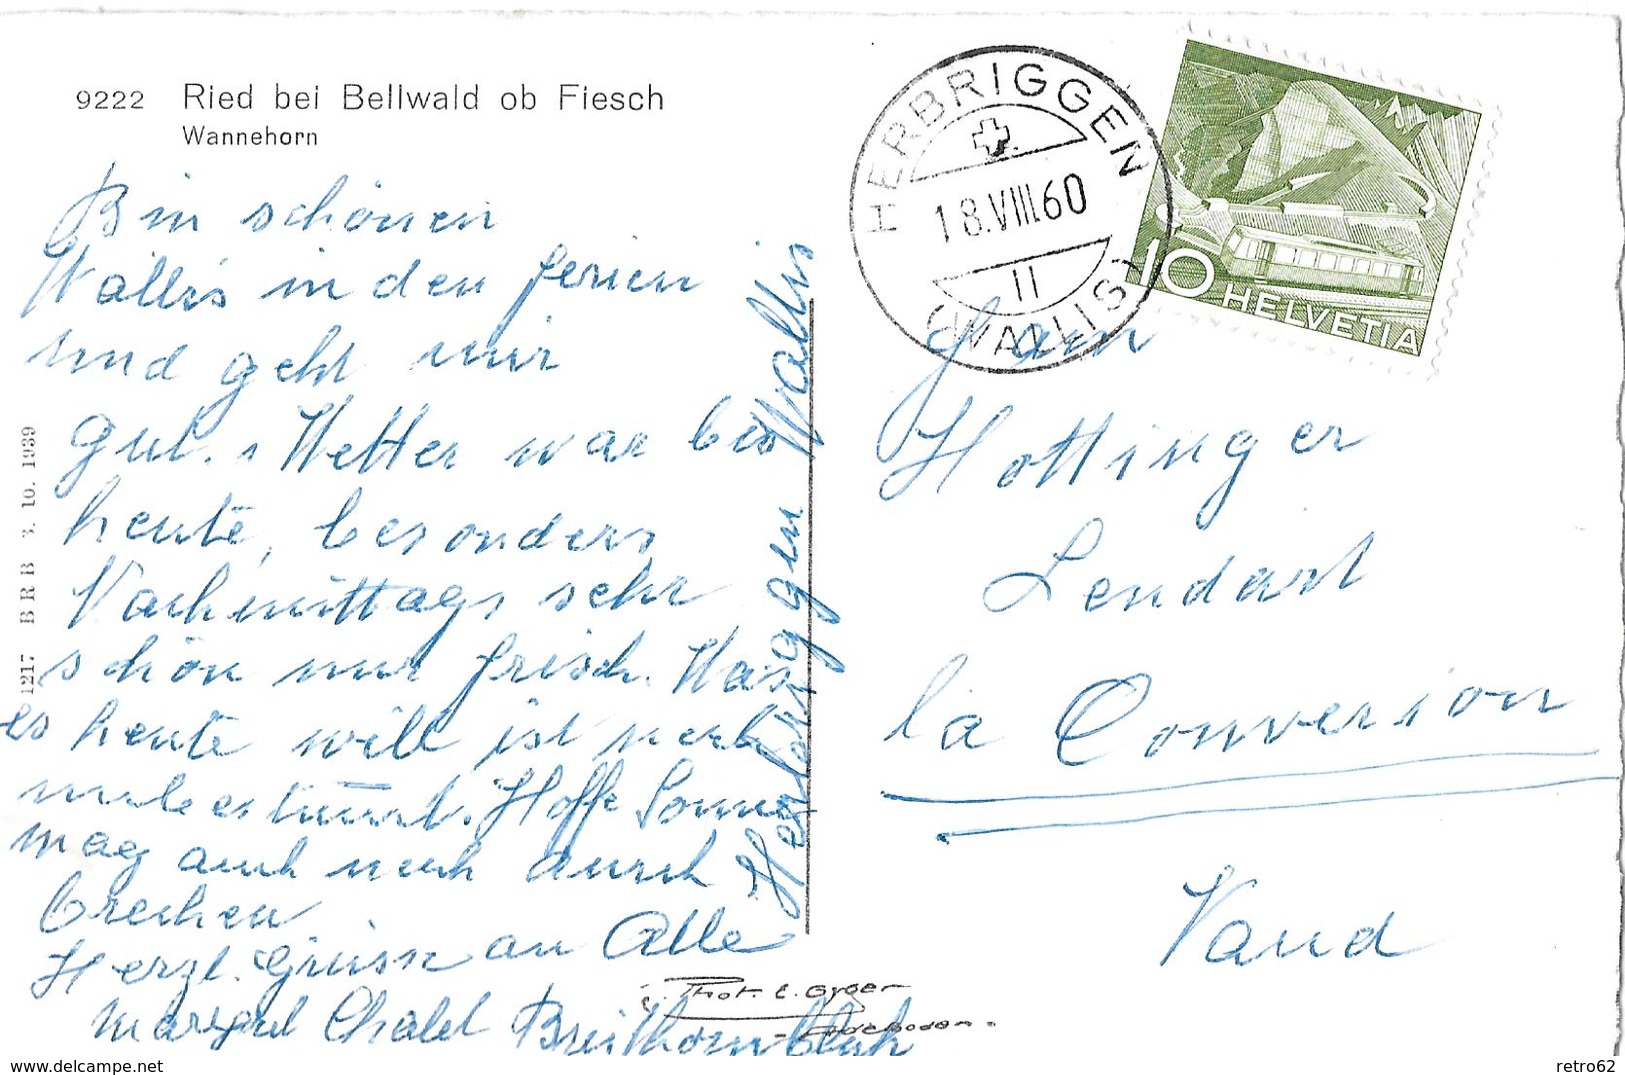 9222 Ried bei Bellwald ob Fiesch
Wannehorn
Bin schönen
Wallis in den ferien
und geht mir
gut. Wetter war bis
heute, besonders
Nachmittags sehr
schön nur frisch. Was
es heute will ist noch
unbestimmt. Hoffe Sonne
mag auch noch durch
brechen
Herzl. Grüsse an Alle
Chalet Breithornblick
Herbriggen Wallis
1217 BRB 3. 10. 1939
Phot. E. Gyger
Adelboden
HERBRIGGEN
18.VIII.60
11
(WALLIS)
10 HELVETIA
Fam
Hottinger
Lendart
la Conversion
Vaud
www.delcampe.net
retro62